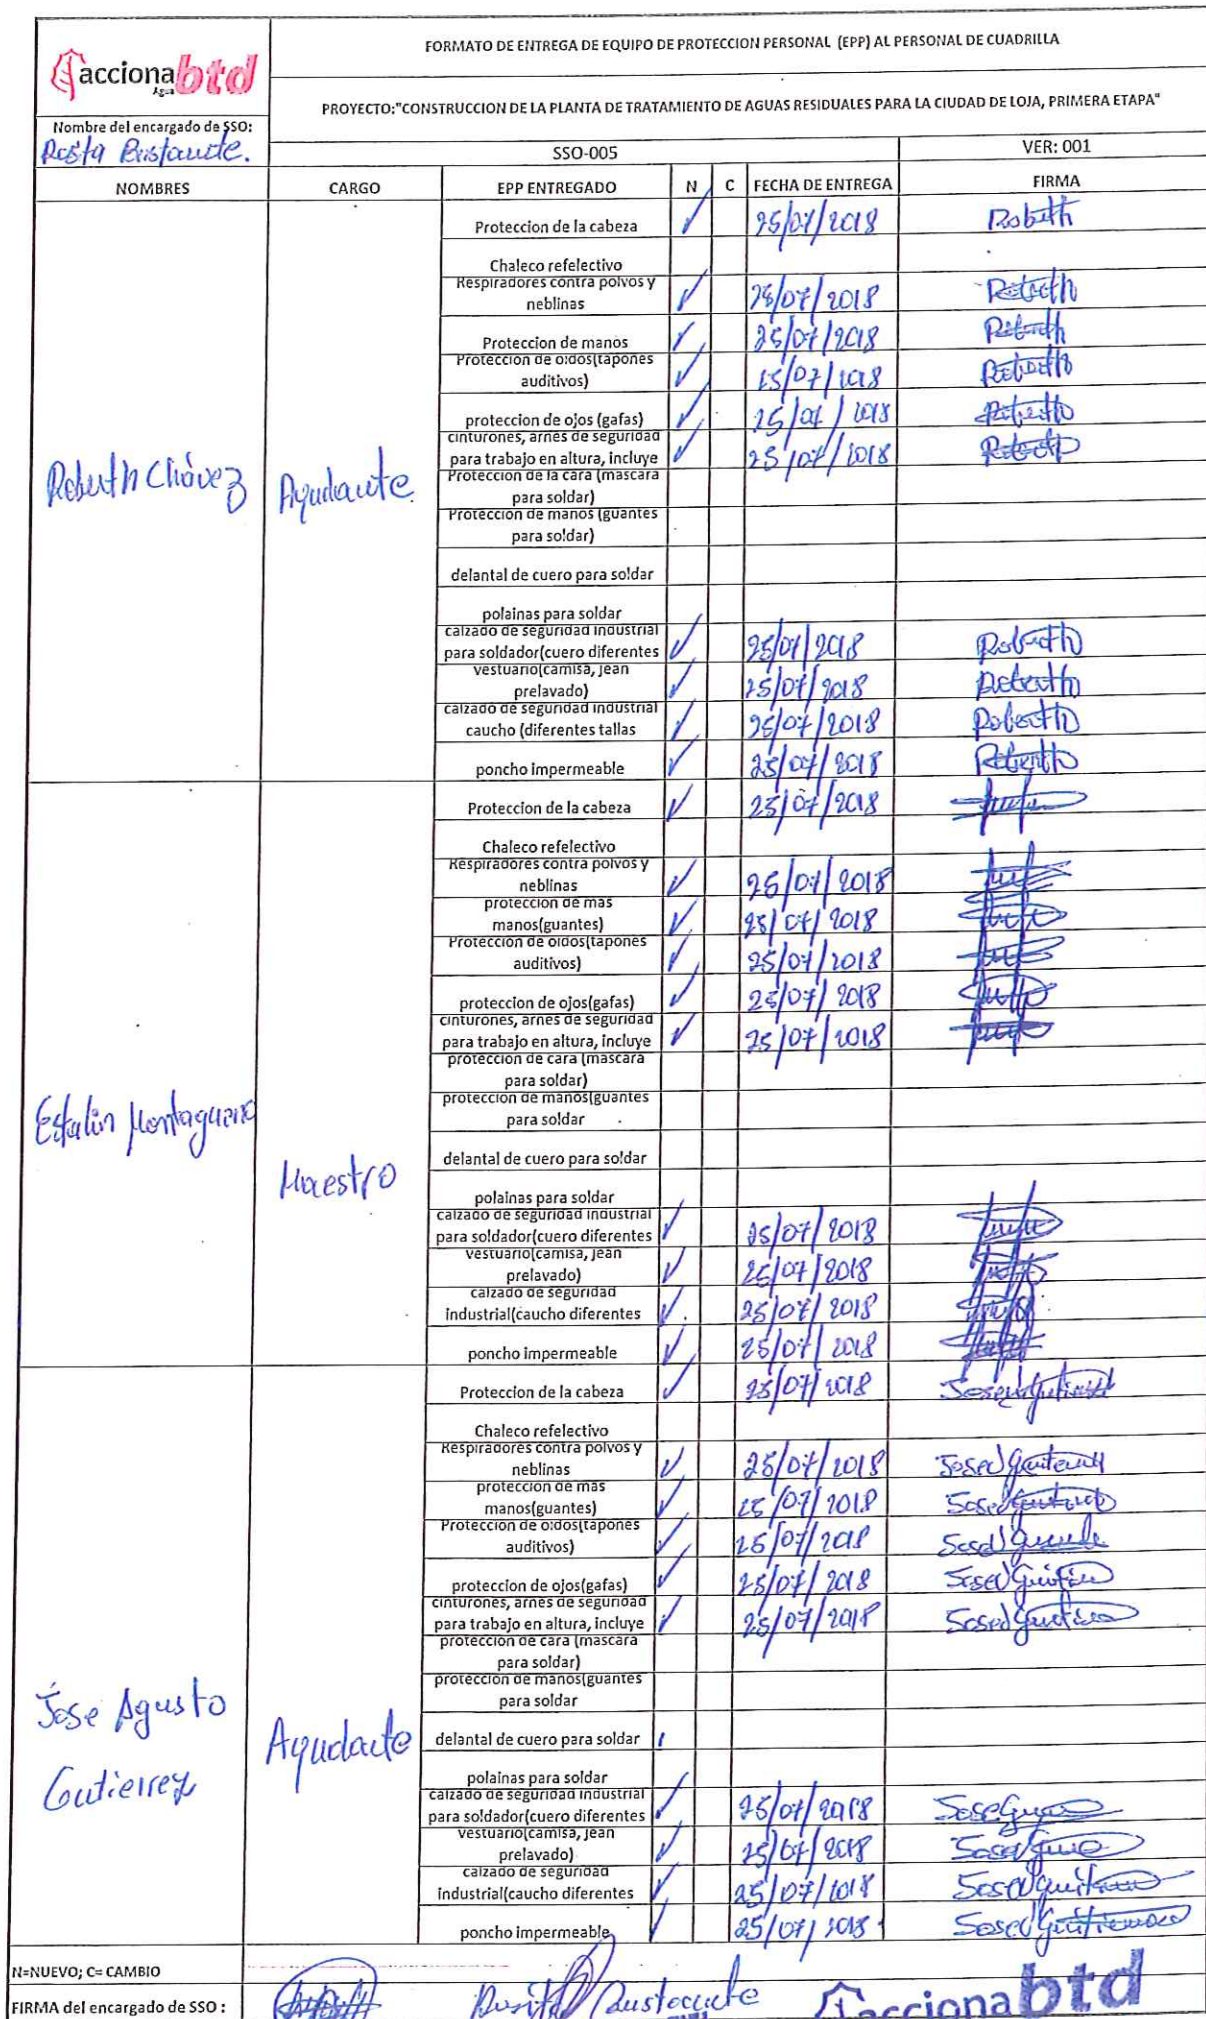 FORMATO DE ENTREGA DE EQUIPO DE PROTECCION PERSONAL (EPP) AL PERSONAL DE CUADRILLA
acciona btd
Agua
PROYECTO:"CONSTRUCCION DE LA PLANTA DE TRATAMIENTO DE AGUAS RESIDUALES PARA LA CIUDAD DE LOJA, PRIMERA ETAPA"
Nombre del encargado de SSO:
Rosita Bustamante.
SSO-005 VER: 001
NOMBRES CARGO EPP ENTREGADO N C FECHA DE ENTREGA FIRMA
Proteccion de la cabeza ✓ 25/07/2018 Roberth
Chaleco refelectivo
Respiradores contra polvos y
neblinas ✓ 25/07/2018 Roberth
Proteccion de manos ✓ 25/07/2018 Roberth
Protección de oidos(tapones
auditivos) ✓ 25/07/2018 Roberth
proteccion de ojos (gafas) ✓ 25/07/2018 Roberth
cinturones, arnes de seguridad
para trabajo en altura, incluye ✓ 25/07/2018 Roberth
Roberth Chávez Ayudante
Protección de la cara (mascara
para soldar)
Protección de manos (guantes
para soldar)
delantal de cuero para soldar
polainas para soldar
calzado de seguridad industrial
para soldador(cuero diferentes ✓ 25/07/2018 Roberth
vestuario(camisa, jean
prelavado) ✓ 25/07/2018 Roberth
calzado de seguridad industrial
caucho (diferentes tallas ✓ 25/07/2018 Roberth
poncho impermeable ✓ 25/07/2018 Roberth
Proteccion de la cabeza ✓ 25/07/2018
Chaleco refelectivo
Respiradores contra polvos y
neblinas ✓ 25/07/2018
protección de mas
manos(guantes) ✓ 25/07/2018
Protección de oidos(tapones
auditivos) ✓ 25/07/2018
proteccion de ojos(gafas) ✓ 25/07/2018
cinturones, arnes de seguridad
para trabajo en altura, incluye ✓ 25/07/2018
protección de cara (mascara
para soldar)
Estalin
protección de manos(guantes
para soldar
delantal de cuero para soldar
Maestro
polainas para soldar
calzado de seguridad industrial
para soldador(cuero diferentes ✓ 25/07/2018
vestuario(camisa, jean
prelavado) ✓ 25/07/2018
calzado de seguridad
industrial(caucho diferentes ✓ 25/07/2018
poncho impermeable ✓ 25/07/2018
Proteccion de la cabeza ✓ 25/07/2018
Chaleco refelectivo
Respiradores contra polvos y
neblinas ✓ 25/07/2018
protección de mas
manos(guantes) ✓ 25/07/2018
Protección de oidos(tapones
auditivos) ✓ 25/07/2018
proteccion de ojos(gafas) ✓ 25/07/2018
cinturones, arnes de seguridad
para trabajo en altura, incluye ✓ 25/07/2018
protección de cara (mascara
para soldar)
protección de manos(guantes
para soldar
Jose Agusto
Gutierrez
Ayudante
delantal de cuero para soldar
polainas para soldar
calzado de seguridad industrial
para soldador(cuero diferentes ✓ 25/07/2018
vestuario(camisa, jean
prelavado) ✓ 25/07/2018
calzado de seguridad
industrial(caucho diferentes ✓ 25/07/2018
poncho impermeable ✓ 25/07/2018
N=NUEVO; C= CAMBIO
FIRMA del encargado de SSO : acciona btd